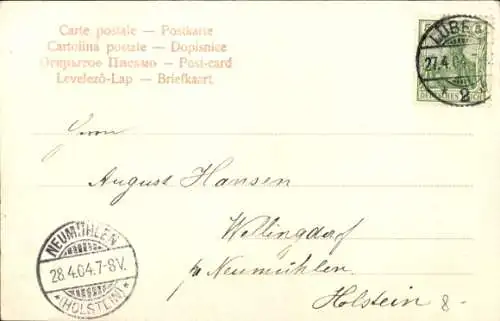 Carte postale — Postkarte
Cartolina postale — Dopisnice
Открытое Письмо — Post-card
Levelező-Lap — Briefkaart
LÜBE
27.4.04
* 2
5
DEUTSCHES REICH
Herrn
August Hansen
Wellingdorf
p/ Neumühlen
Holstein 8-
NEUMÜHLEN
28.4.04.7-8V.
*(HOLSTEIN)*